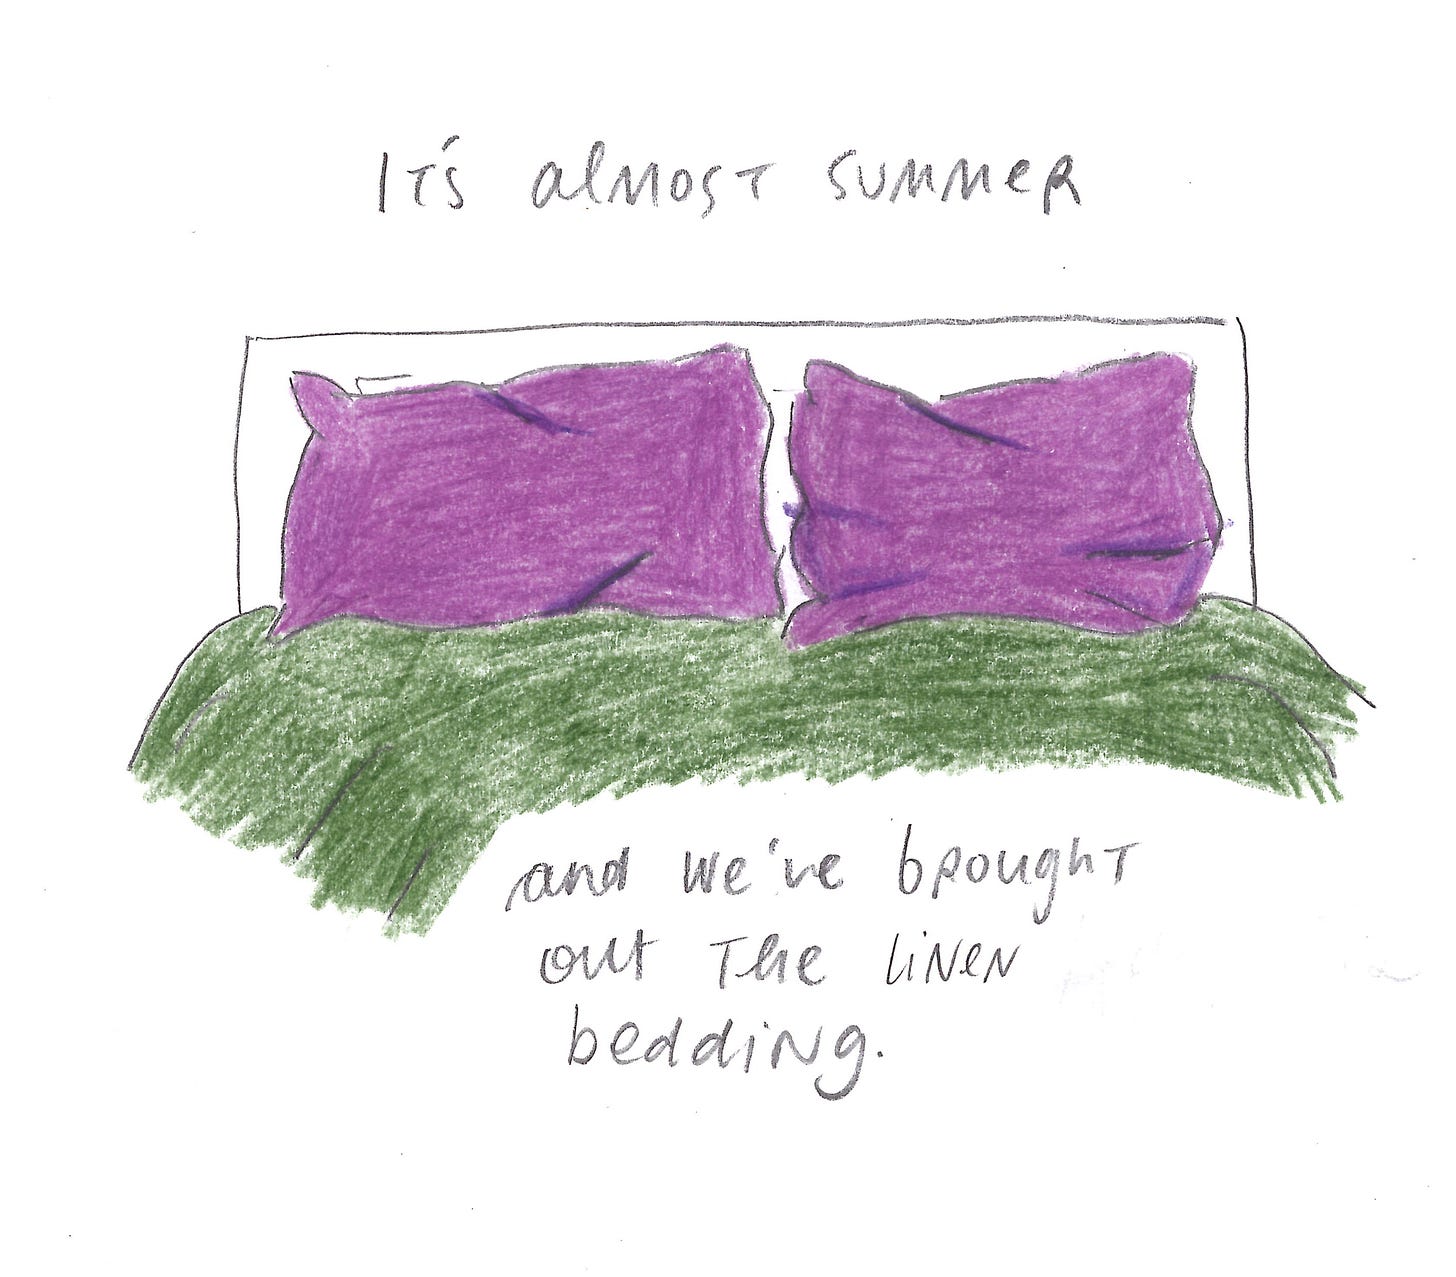 It's almost summer
and we've brought
out the linen
bedding.